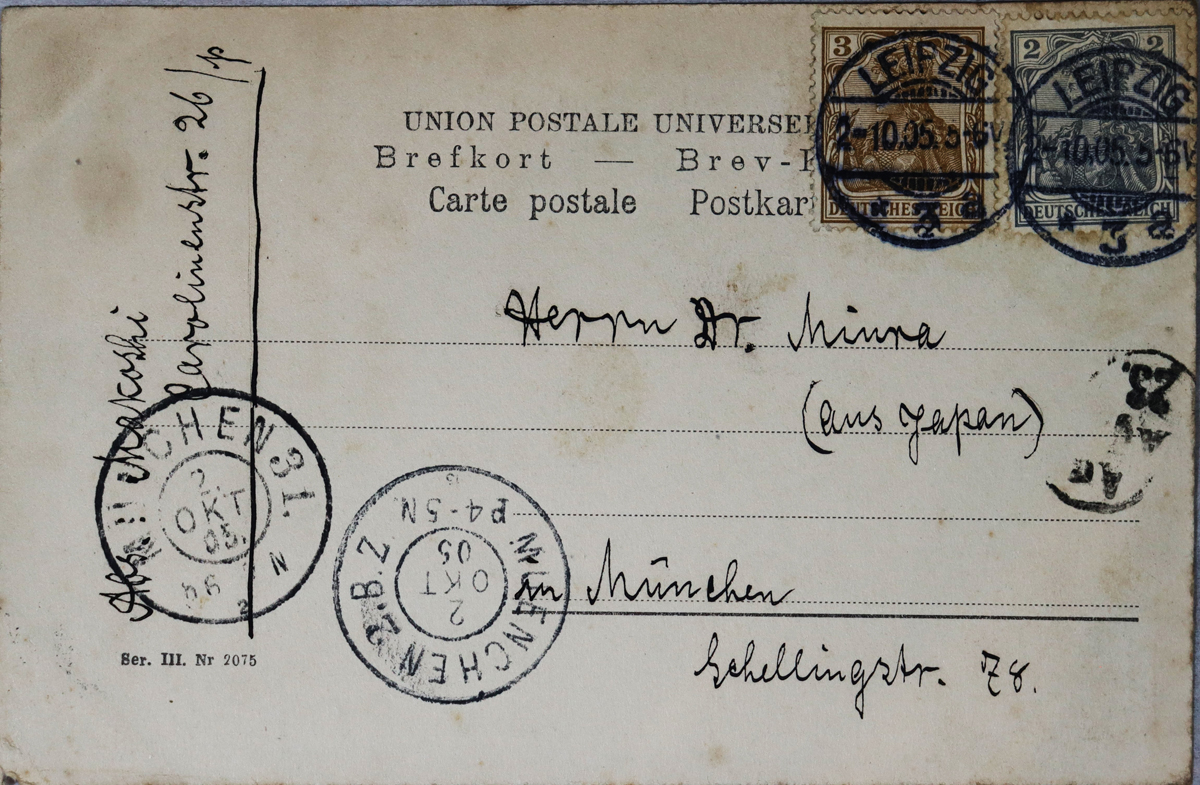 UNION POSTALE UNIVERSEL
Brefkort — Brev-
Carte postale Postkar
3
DEUTSCHES REICH
2 2
DEUTSCHES REICH
LEIPZIG
2-10.05. 5-6V.
* 3 a
LEIPZIG
2-10.05. 5-6V
* 3 a
Herrn Dr. Miura
(aus Japan)
in München
Schellingstr. 78.
Abs. Makoshi
Carolinenstr. 26/p
MUENCHEN 31.
2.
OKT
05
N
MUENCHEN 2.B.Z
P4-5N.
2
OKT
05
Ser. III. Nr 2075